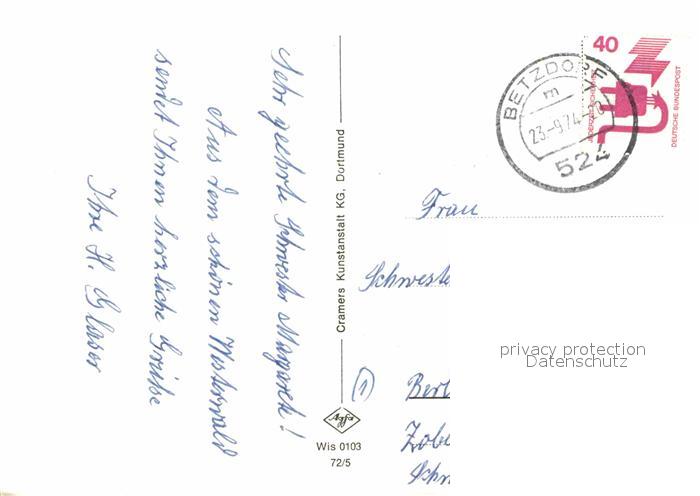 Sehr geehrte Schwester Margaret!
Aus dem schönen Westerwald
sendet Ihnen herzliche Grüße
Ihre H. Glaser
Cramers Kunstanstalt KG, Dortmund
Agfa
Wis 0103
72/5
40
JEDERZEIT SICHERHEIT
DEUTSCHE BUNDESPOST
BETZDORF
m
23.-9.74.-8
524
Frau
Schweste
① Berl
Zobe
Schn
privacy protection
Datenschutz